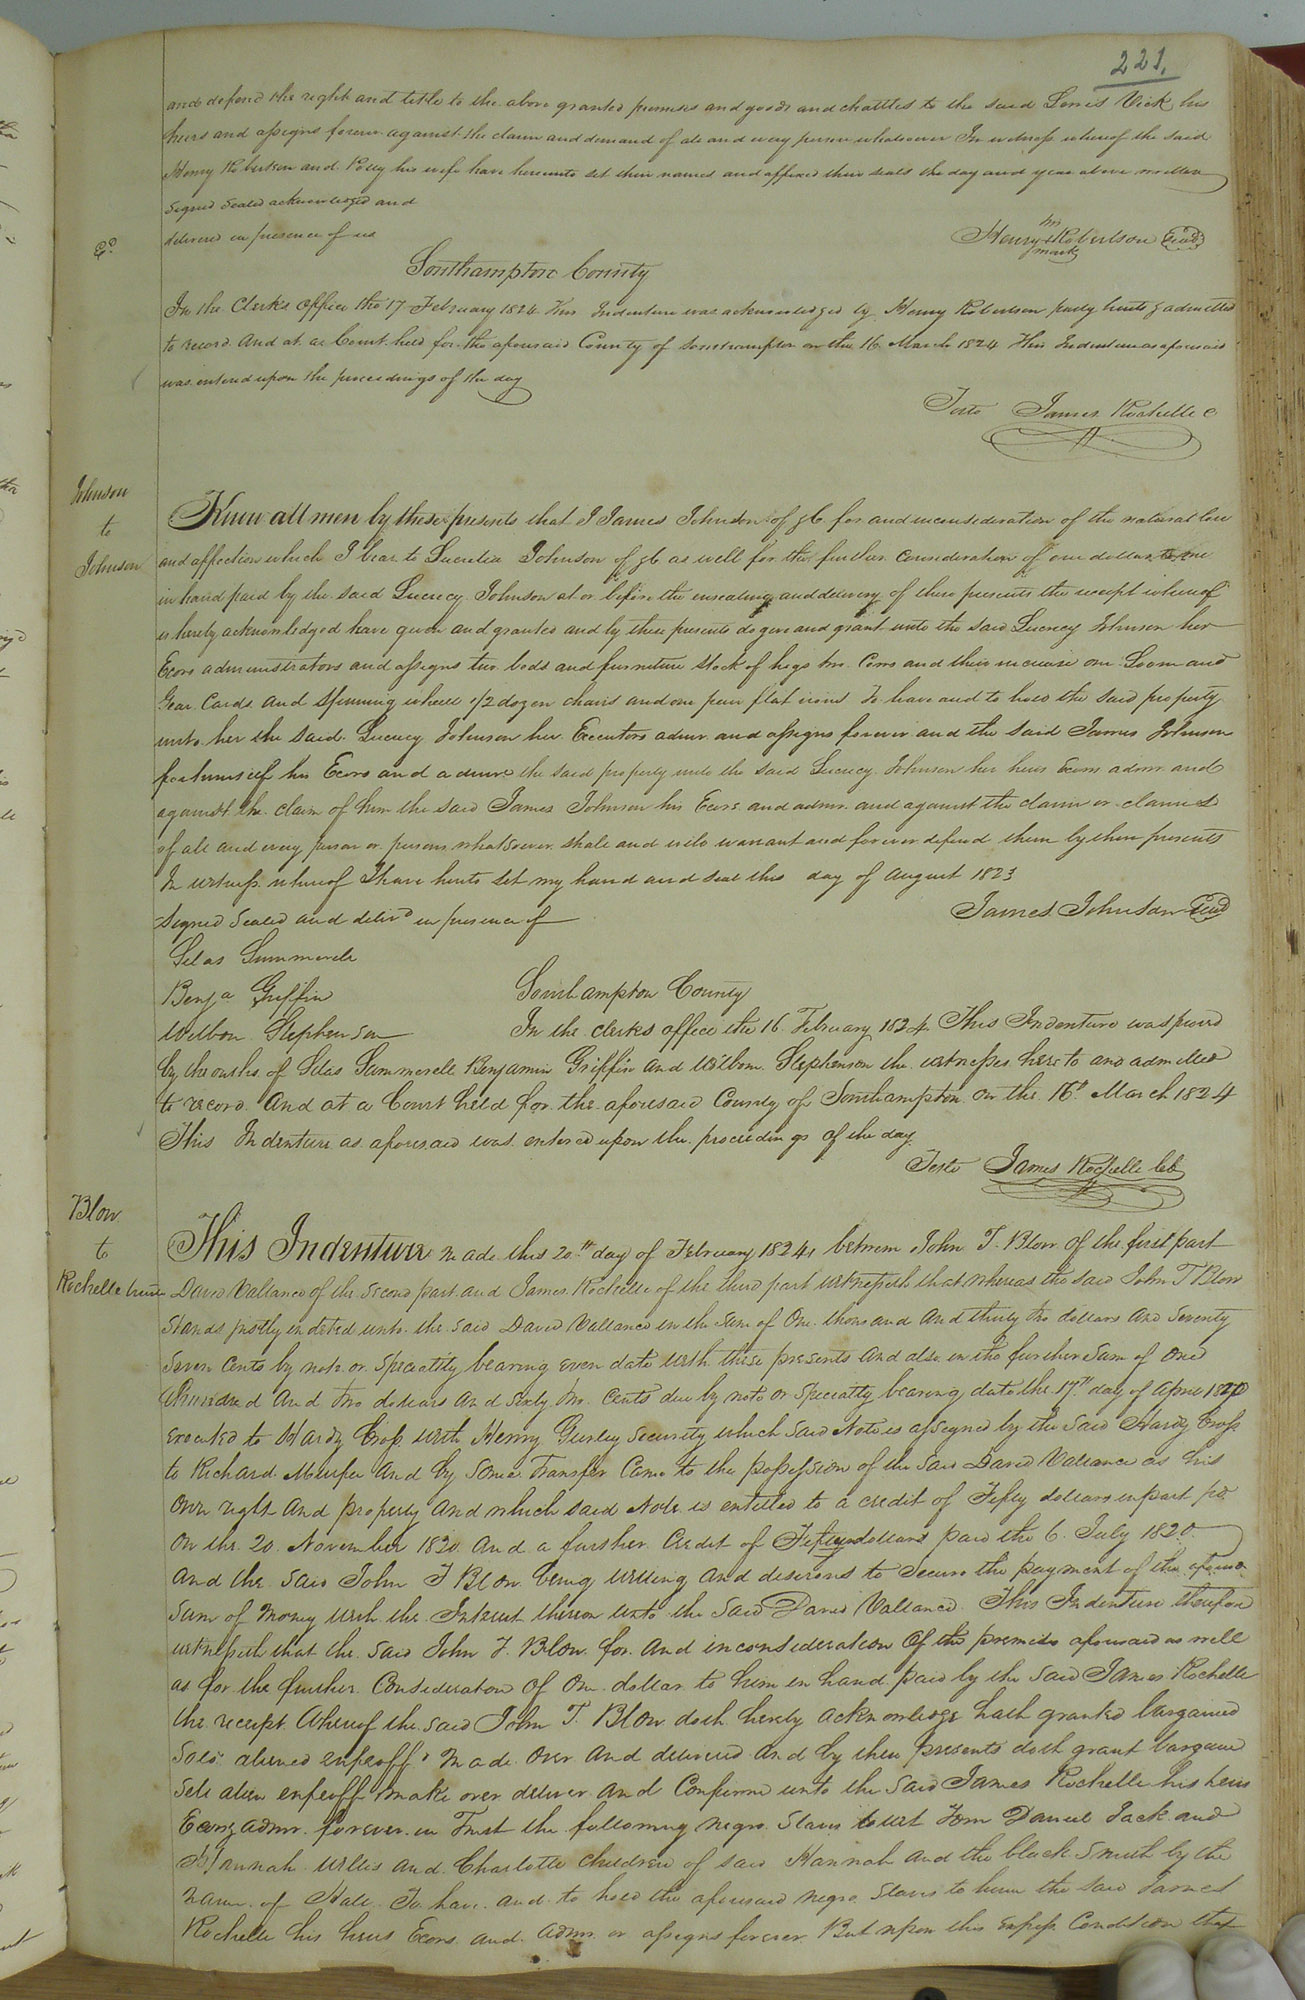 221.
and defend the right and title to the above granted premises and goods and chattles to the said Lewis Vick his
heirs and assigns forever against the claim and demand of all and every person whatsoever In witness whereof the said
Henry Robertson and Polly his wife have hereunto set their names and affixed their seals the day and year above written
Signed Sealed acknowledged and
delivered in presence of us
his
Henry + Robertson Seal
mark
Southampton County
In the Clerks office the 17 February 1824 This Indenture was acknowledged by Henry Robertson party hereto & admitted
to record And at a Court held for the aforesaid County of Southampton on the 16 March 1824 This Indenture as aforesaid
was entered upon the proceedings of the day
Teste James Rochelle C
Johnson
to
Johnson
Know all men by these presents that I James Johnson of for and in consideration of the natural love
and affection which I bear to Lucretia Johnson of as well for the further consideration of one dollar to me
in hand paid by the said Lucrecy Johnson at or before the ensealing and delivery of these presents the receipt whereof
is hereby acknowledged have given and granted and by these presents do give and grant unto the said Lucrecy Johnson her
Exors administrators and assigns two beds and furniture stock of hogs two Cows and their increase one Loom and
Gear Cards and Spinning wheel 1/2 dozen chairs and one pair flat irons To have and to hold the said property
unto her the said Lucrecy Johnson her Executors admrs and assigns forever and the said James Johnson
for himself his Exors and admrs the said property unto the said Lucrecy Johnson her heirs Exors admrs and
against the claim of him the said James Johnson his Exors and admrs and against the claim or claims
of all and every person or persons whatsoever shall and will warrant and forever defend them by these presents
In witness whereof I have hereto set my hand and seal this day of August 1823
Signed Sealed and delivd in presence of
James Johnson Seal
Silas Summerele
Benja Griffin
Southampton County
Wilbon Stephenson
In the clerks office the 16 February 1824 This Indenture was proved
by the oaths of Silas Summerelle Benjamin Griffin and Wilbon Stephenson the witnesses hereto and admitted
to record And at a Court held for the aforesaid County of Southampton on the 16th March 1824
This Indenture as aforesaid was entered upon the proceedings of the day
Teste James Rochelle
Blow
to
Rochelle
This Indenture made this 20th day of February 1824 between John T. Blow of the first part
David Vallance of the second part and James Rochelle of the third part witnesseth that whereas the said John T Blow
Stands justly indebted unto the said David Vallance in the sum of One thousand and thirty two dollars and Seventy
Seven Cents by note or Specialty bearing even date with these presents and also in the further sum of one
hundred and two dollars and sixty two Cents due by note or Specialty bearing date the 17th day of April 1820
executed to Hardy Cross with Henry Gurley security which said Note is assigned by the said Hardy Cross
to Richard Murfee and by some Transfer Came to the possession of the said David Vallance as his
own right and property and which said Note is entitled to a credit of Fifty dollars in part pd
on the 20 November 1820 and a further Credit of dollars paid the 6 July 1820
and the said John T Blow being willing and desirous to secure the payment of the
Sum of money with the Interest thereon unto the said David Vallance This Indenture therefore
witnesseth that the said John T. Blow for and in consideration Of the premises aforesaid as well
as for the further Consideration of One dollar to him in hand paid by the said James Rochelle
the receipt whereof the said John T. Blow doth hereby acknowledge hath granted bargained
Sold aliened enfeoff'd made over and delivered and by these presents doth grant bargain
Sell alien enfeoff make over deliver and Confirm unto the said James Rochelle his heirs
Exors & admrs forever in Trust the following negro Slaves to wit Tom Daniel Jack and
Hannah Willis and Charlotte children of said Hannah and the black Smith by the
name of To have and to hold the aforesaid negro Slaves to him the said James
Rochelle his heirs Exors and Admrs or assigns forever But upon this express Condition that